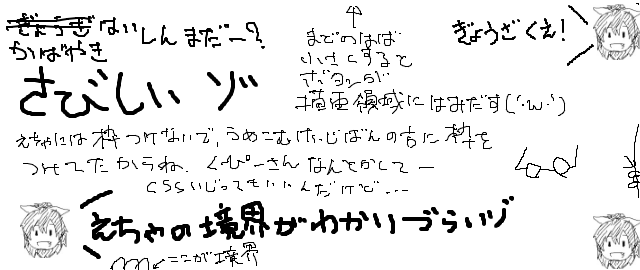 はいしんまだー?
かばやき
さびしいゾ
までのはば
小さくすると
ボタンが
描画領域にはみだす(´・ω・`)
ぎょうざくえ!
えちゃには枠つけないで、うめこむけいじばんの方に枠を
つけてたからね、くぴーさんなんとかしてー
CSSいじってもいいんだけど...
えちゃの境界がわかりづらいゾ
ここが境界